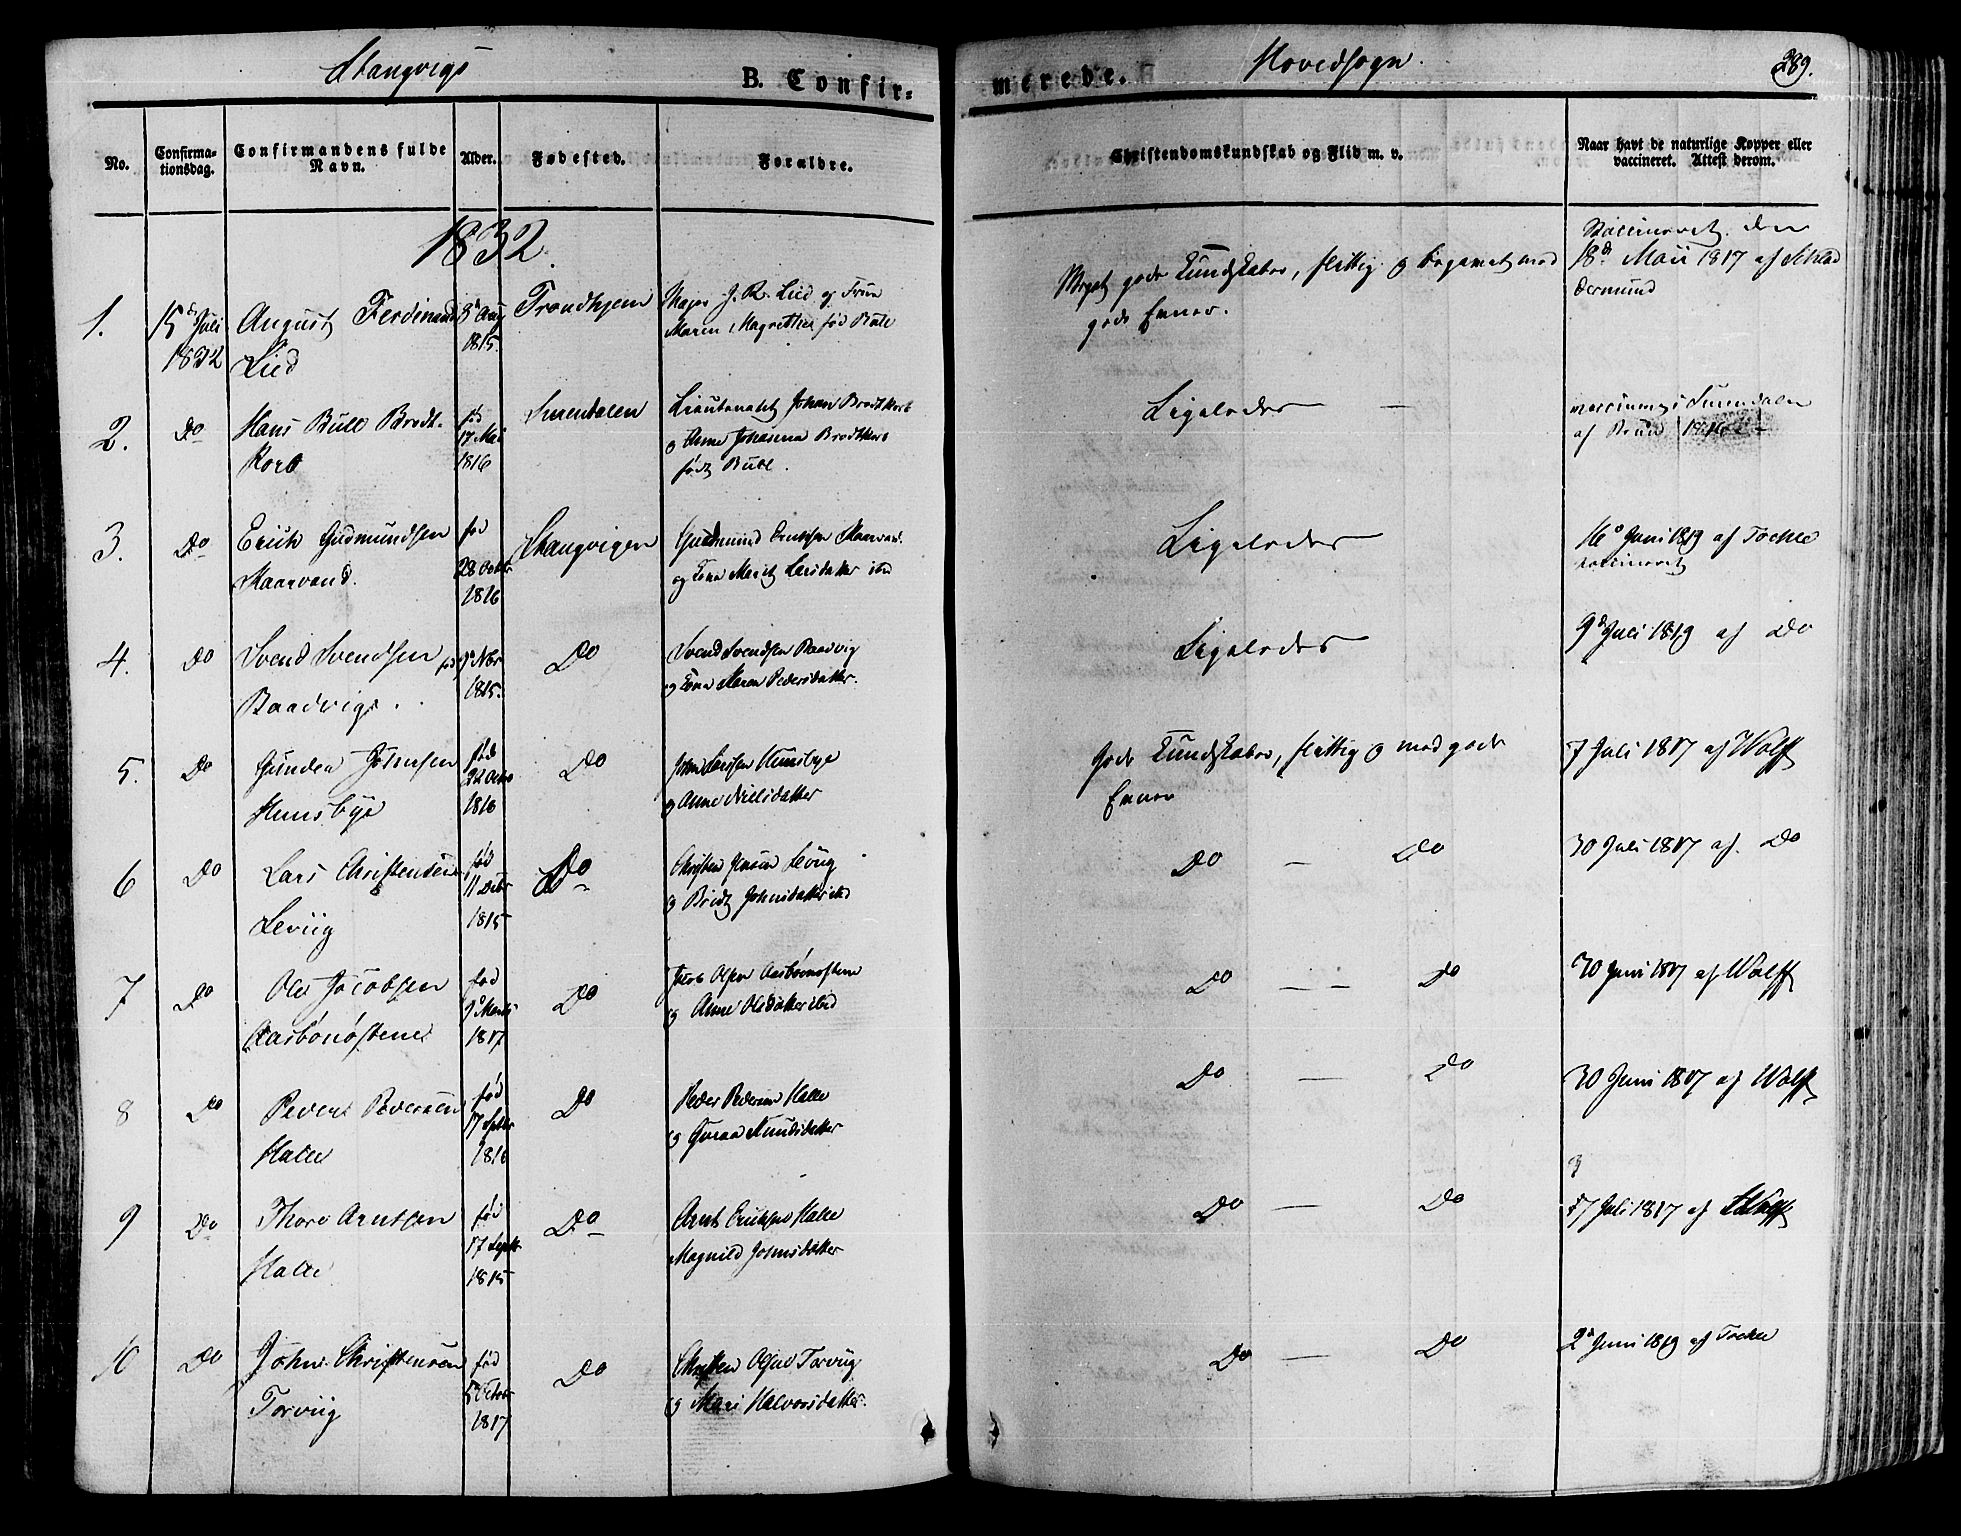 Stangvigs
B. Confir-
merede.
Hovedsogn.
289.
No.
Confirma-
tionsdag.
Confirmandens fulde
Navn.
Alder.
Fødested.
Foraldre.
Christendomskundskab og Flid m. v.
Naar havt de naturlige Kopper eller
vaccineret. Attest derom.
1832.
1.
15d Juli
1832
August Ferdinand
Lied
8d Aug
1815.
Trondhjem
Major J. R. Lied og Frue
Maren Magrethe fød Bull
Meget gode Kundskaber, flittig og begavet med
gode Evner.
Vaccineret den
18d Maii 1817 af
2.
Do
Hans Bull Brodt-
Korb
fød
17 Mai
1816
Surendalen
Lieutenant Johan Brodtkorb
og Anne Johanna Brodtkorb
født Bull.
Ligeledes —
Surendalen
af
3.
Do
Erich Gudmundsen
Skaarvand.
fød
28 Octbr
1816
Stangvigen
Gudmund Erichsen
og Kona Marit Larsdatter ibd
Ligeledes
16d Juni 1819 af Tochle
vaccineret
4.
Do
Svend Svendsen
Baadvigs.
fød
9d Nbr
1815.
Do
Svend Svendsen Baadvig
og Kona Maren Pedersdatter.
Ligeledes
9d Juli 1819 af Do
5.
Do
Gunder Johnsen
Hunsbye
fød
22 Octbr
1816
Do
John Larssen Hunsbye
og Anne Nielsdatter
Gode Kundskaber, flittig og med gode
Evner
7 Juli 1817 af Wolff
6
Do
Lars Christensen
Leviig
fød
11 Decbr
1815
Do
Christen Jensen Leviig
og Bridt Johnsdatter ibd
Do — Do
30 Juli 1817 af Do
7
Do
Ole Jacobsen
Aasbönöstene
fød
9d Marts
1817
Do
Jacob Olsen Aasbönöstene
og Anne Olsdatter ibid
Do — — Do
30 Juni 1817 af Wolff
8
Do
Peder Pedersen
Halle
fød
17 Septbr
1816
Do
Peder Pedersen Halle
og Guroe Knudsdatter
Do — Do
30 Juni 1817 af Wolff
9
Do
Thore Arntsen
Halle
fød
17 Septbr
1815
Do
Arnt Erichsen Halle
Magnild Johnsdatter
Do — Do
17 Juli 1817 af Wolff
10
Do
John Christensen
Torviig
fød
5 Octobr
1817
Do
Christen Olsen Torviig
og Mari Halvorsdatter.
Do — Do
2d Juni 1819 af Tochle